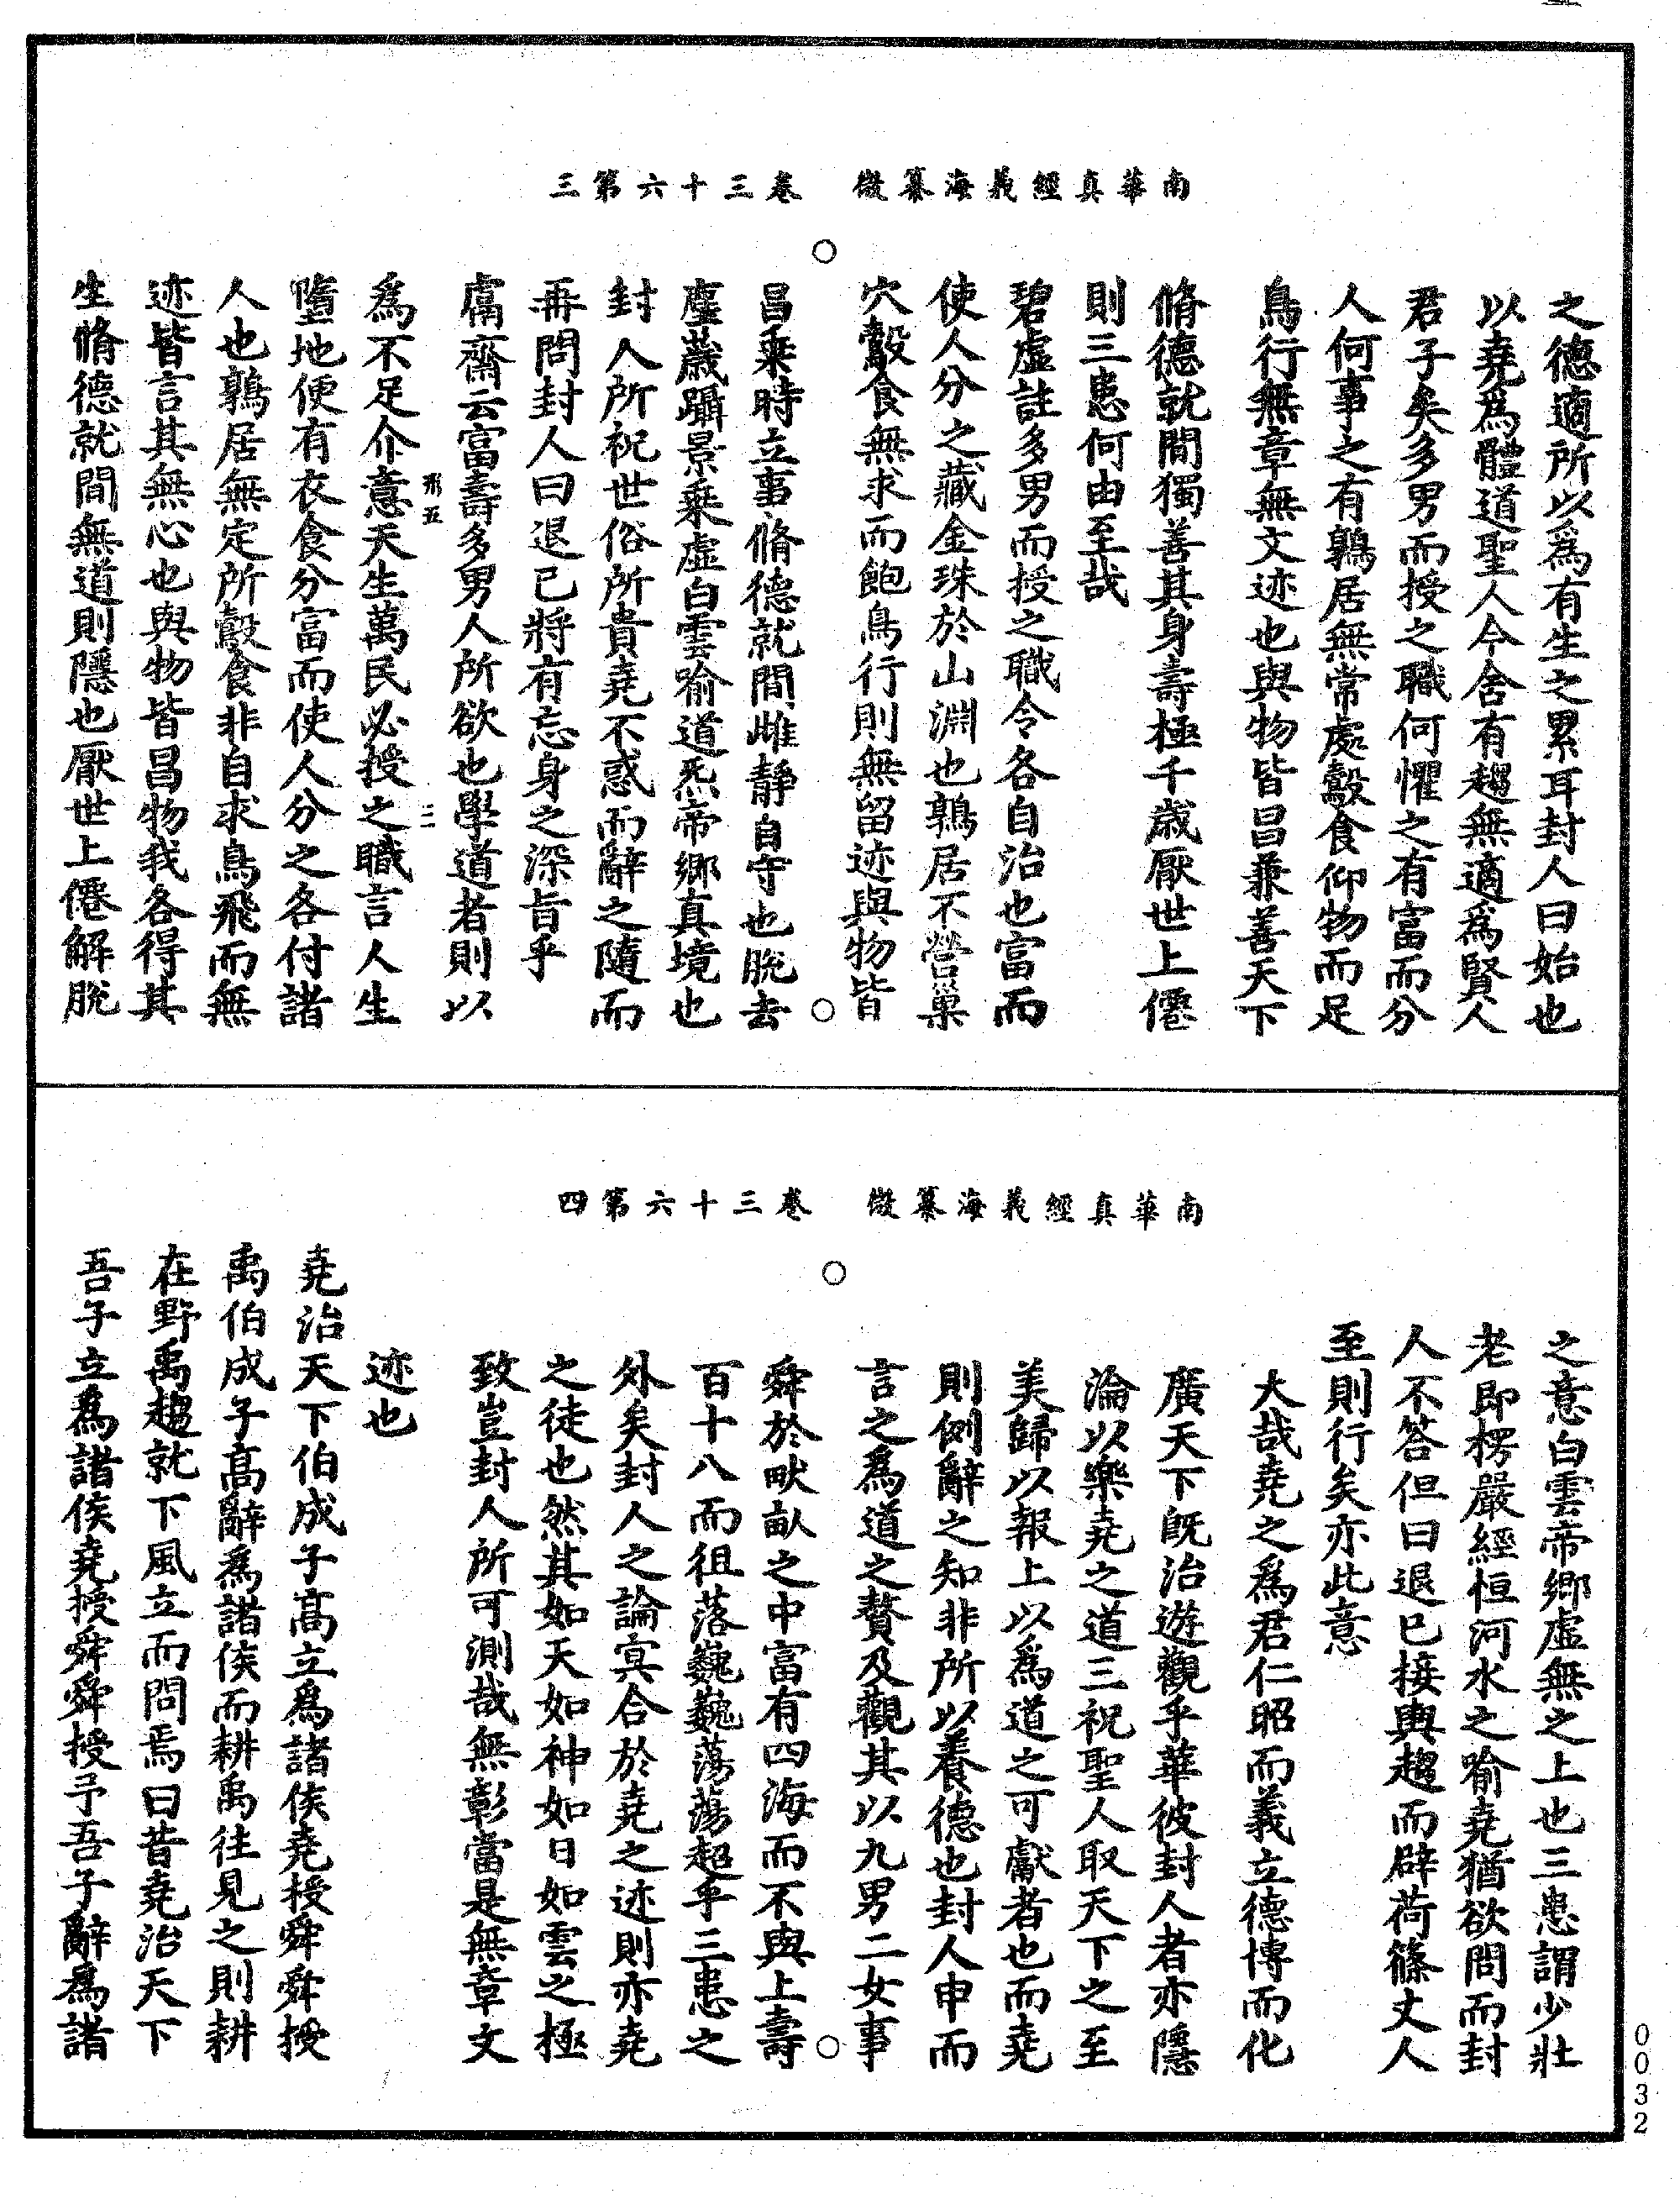 南華真經義海纂微　卷三十六第三
之德適所以為有生之累耳封人曰始也
以堯為體道聖人今舍有趨無適為賢人
君子矣多男而授之職何懼之有富而分
人何事之有鶉居無常處鷇食仰物而足
鳥行無章無文迹也與物皆昌兼善天下
脩德就間獨善其身壽極千歲厭世上僊
則三患何由至哉
碧虛註多男而授之職令各自治也富而
使人分之藏金珠於山淵也鶉居不營巢
穴鷇食無求而飽鳥行則無留迹與物皆
昌乗時立事脩德就間雌靜自守也脫去
塵蕆躡景乗虛白雲喻道炁帝鄉真境也
封人所祝世俗所貴堯不惑而辭之隨而
再問封人曰退已將有忘身之深旨乎
鬳齋云富壽多男人所欲也學道者則以
為不足介意天生萬民必授之職言人生
墮地便有衣食分富而使人分之各付諸
人也鶉居無定所鷇食非自求鳥飛而無
迹皆言其無心也與物皆昌物我各得其
生脩德就間無道則隱也厭世上僊解脫
南華真經義海纂微　卷三十六第四
之意白雲帝鄉虛無之上也三患謂少壯
老即楞嚴經恒河水之喻堯猶欲問而封
人不答但曰退已接輿趨而辟荷篠丈人
至則行矣亦此意
大哉堯之為君仁昭而義立德博而化
廣天下旣治遊觀乎華彼封人者亦隱
淪以樂堯之道三祝聖人取天下之至
美歸以報上以為道之可獻者也而堯
則例辭之知非所以養德也封人申而
言之為道之贅及觀其以九男二女事
舜於畎畝之中富有四海而不與上壽
百十八而徂落巍巍蕩蕩超乎三患之
外矣封人之論㝠合於堯之迹則亦堯
之徒也然其如天如神如日如雲之極
致豈封人所可測哉無彰當是無章文
迹也
堯治天下伯成子高立為諸侯堯授舜舜授
禹伯成子高辭為諸侯而耕禹往見之則耕
在野禹趨就下風立而問焉曰昔堯治天下
吾子立為諸侯堯授舜舜授予吾子辭為諸
0032